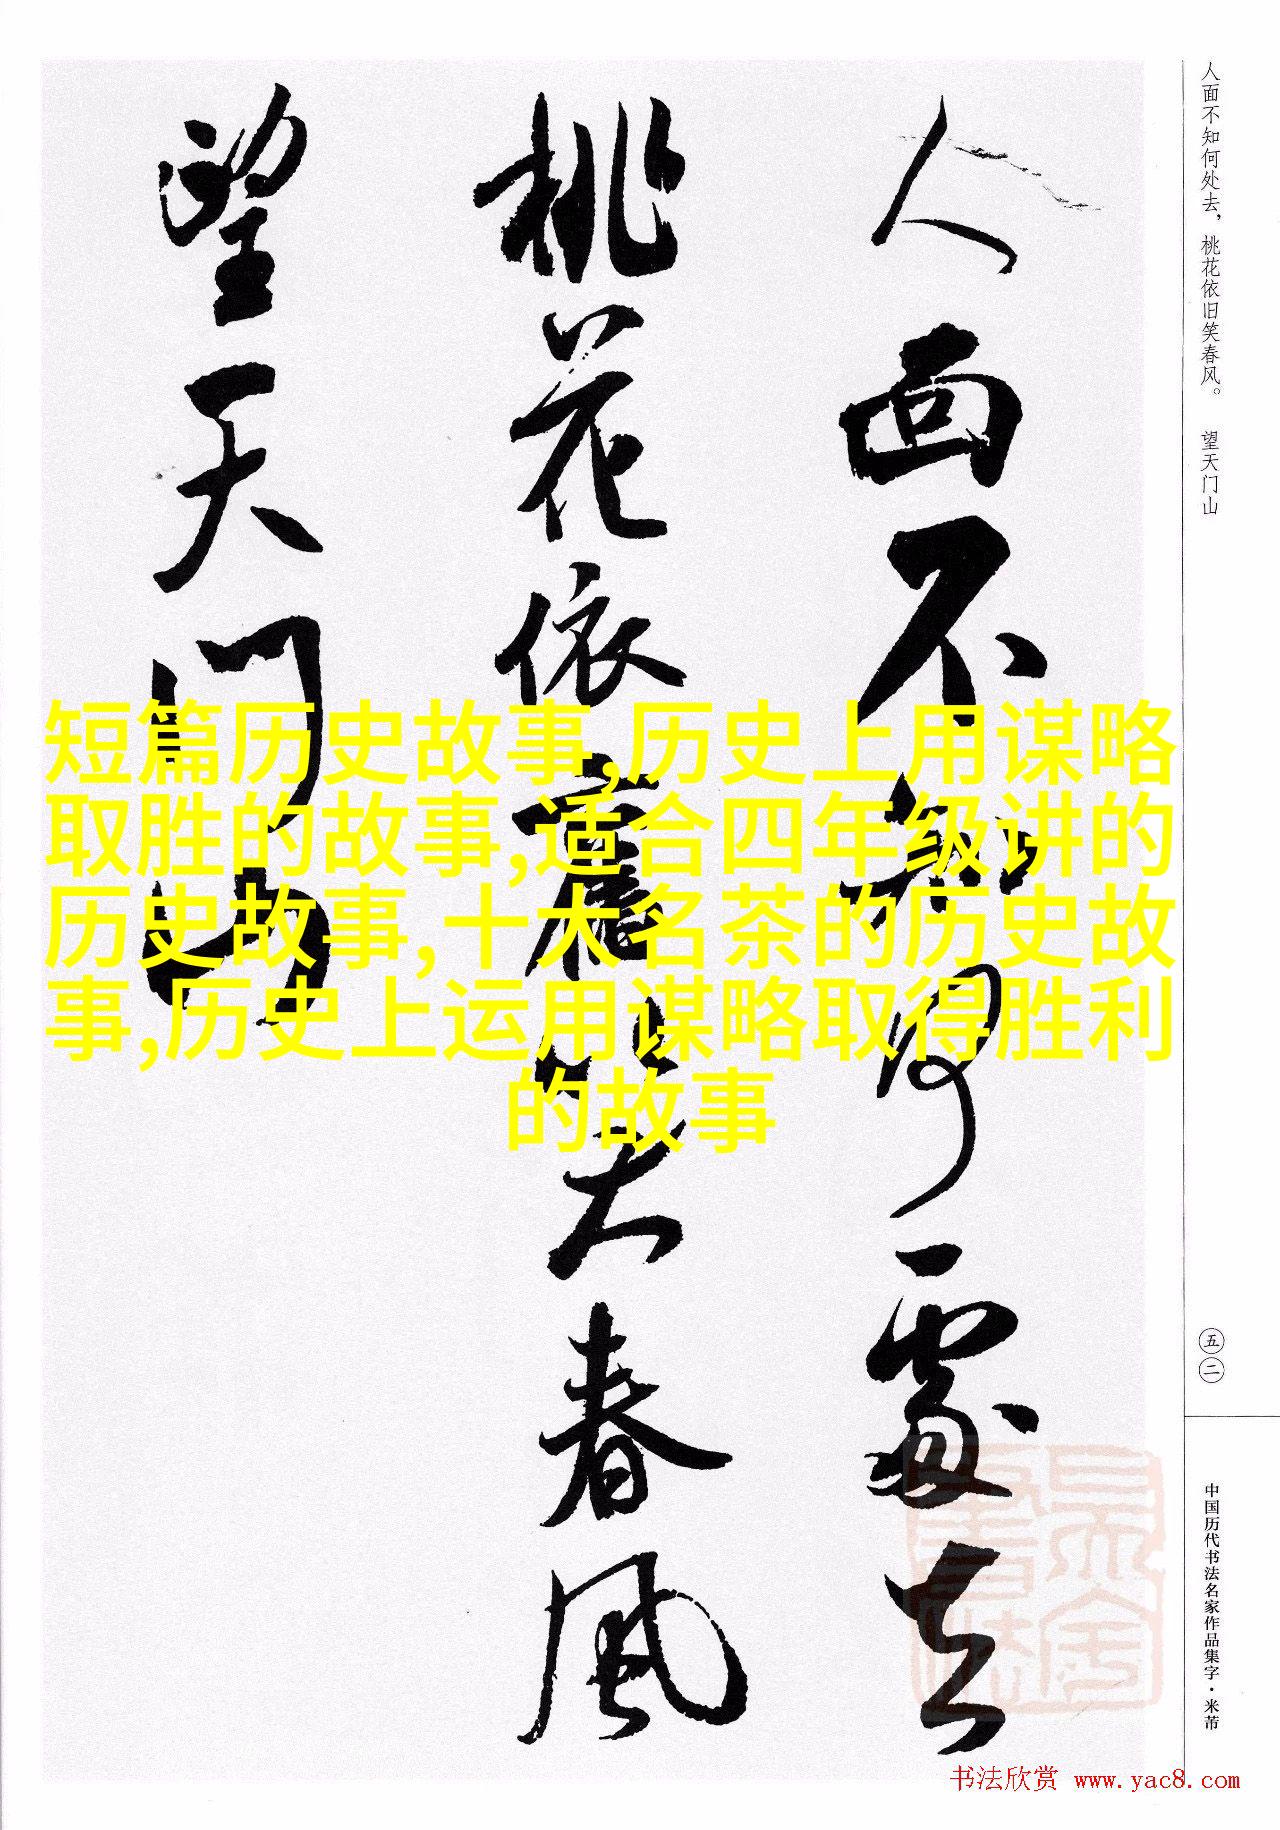 人面不知何处去，桃花依旧笑春风。 望天门山
人面不知何處去
桃花依舊笑春風
望天門山
短篇历史故事,历史上用谋略
取胜的故事,适合四年级讲的
历史故事,十大名茶的历史故
事,历史上运用谋略取得胜利
的故事
五二
中国历代书法名家作品集字·米芾
书法欣赏 www.yac8.com